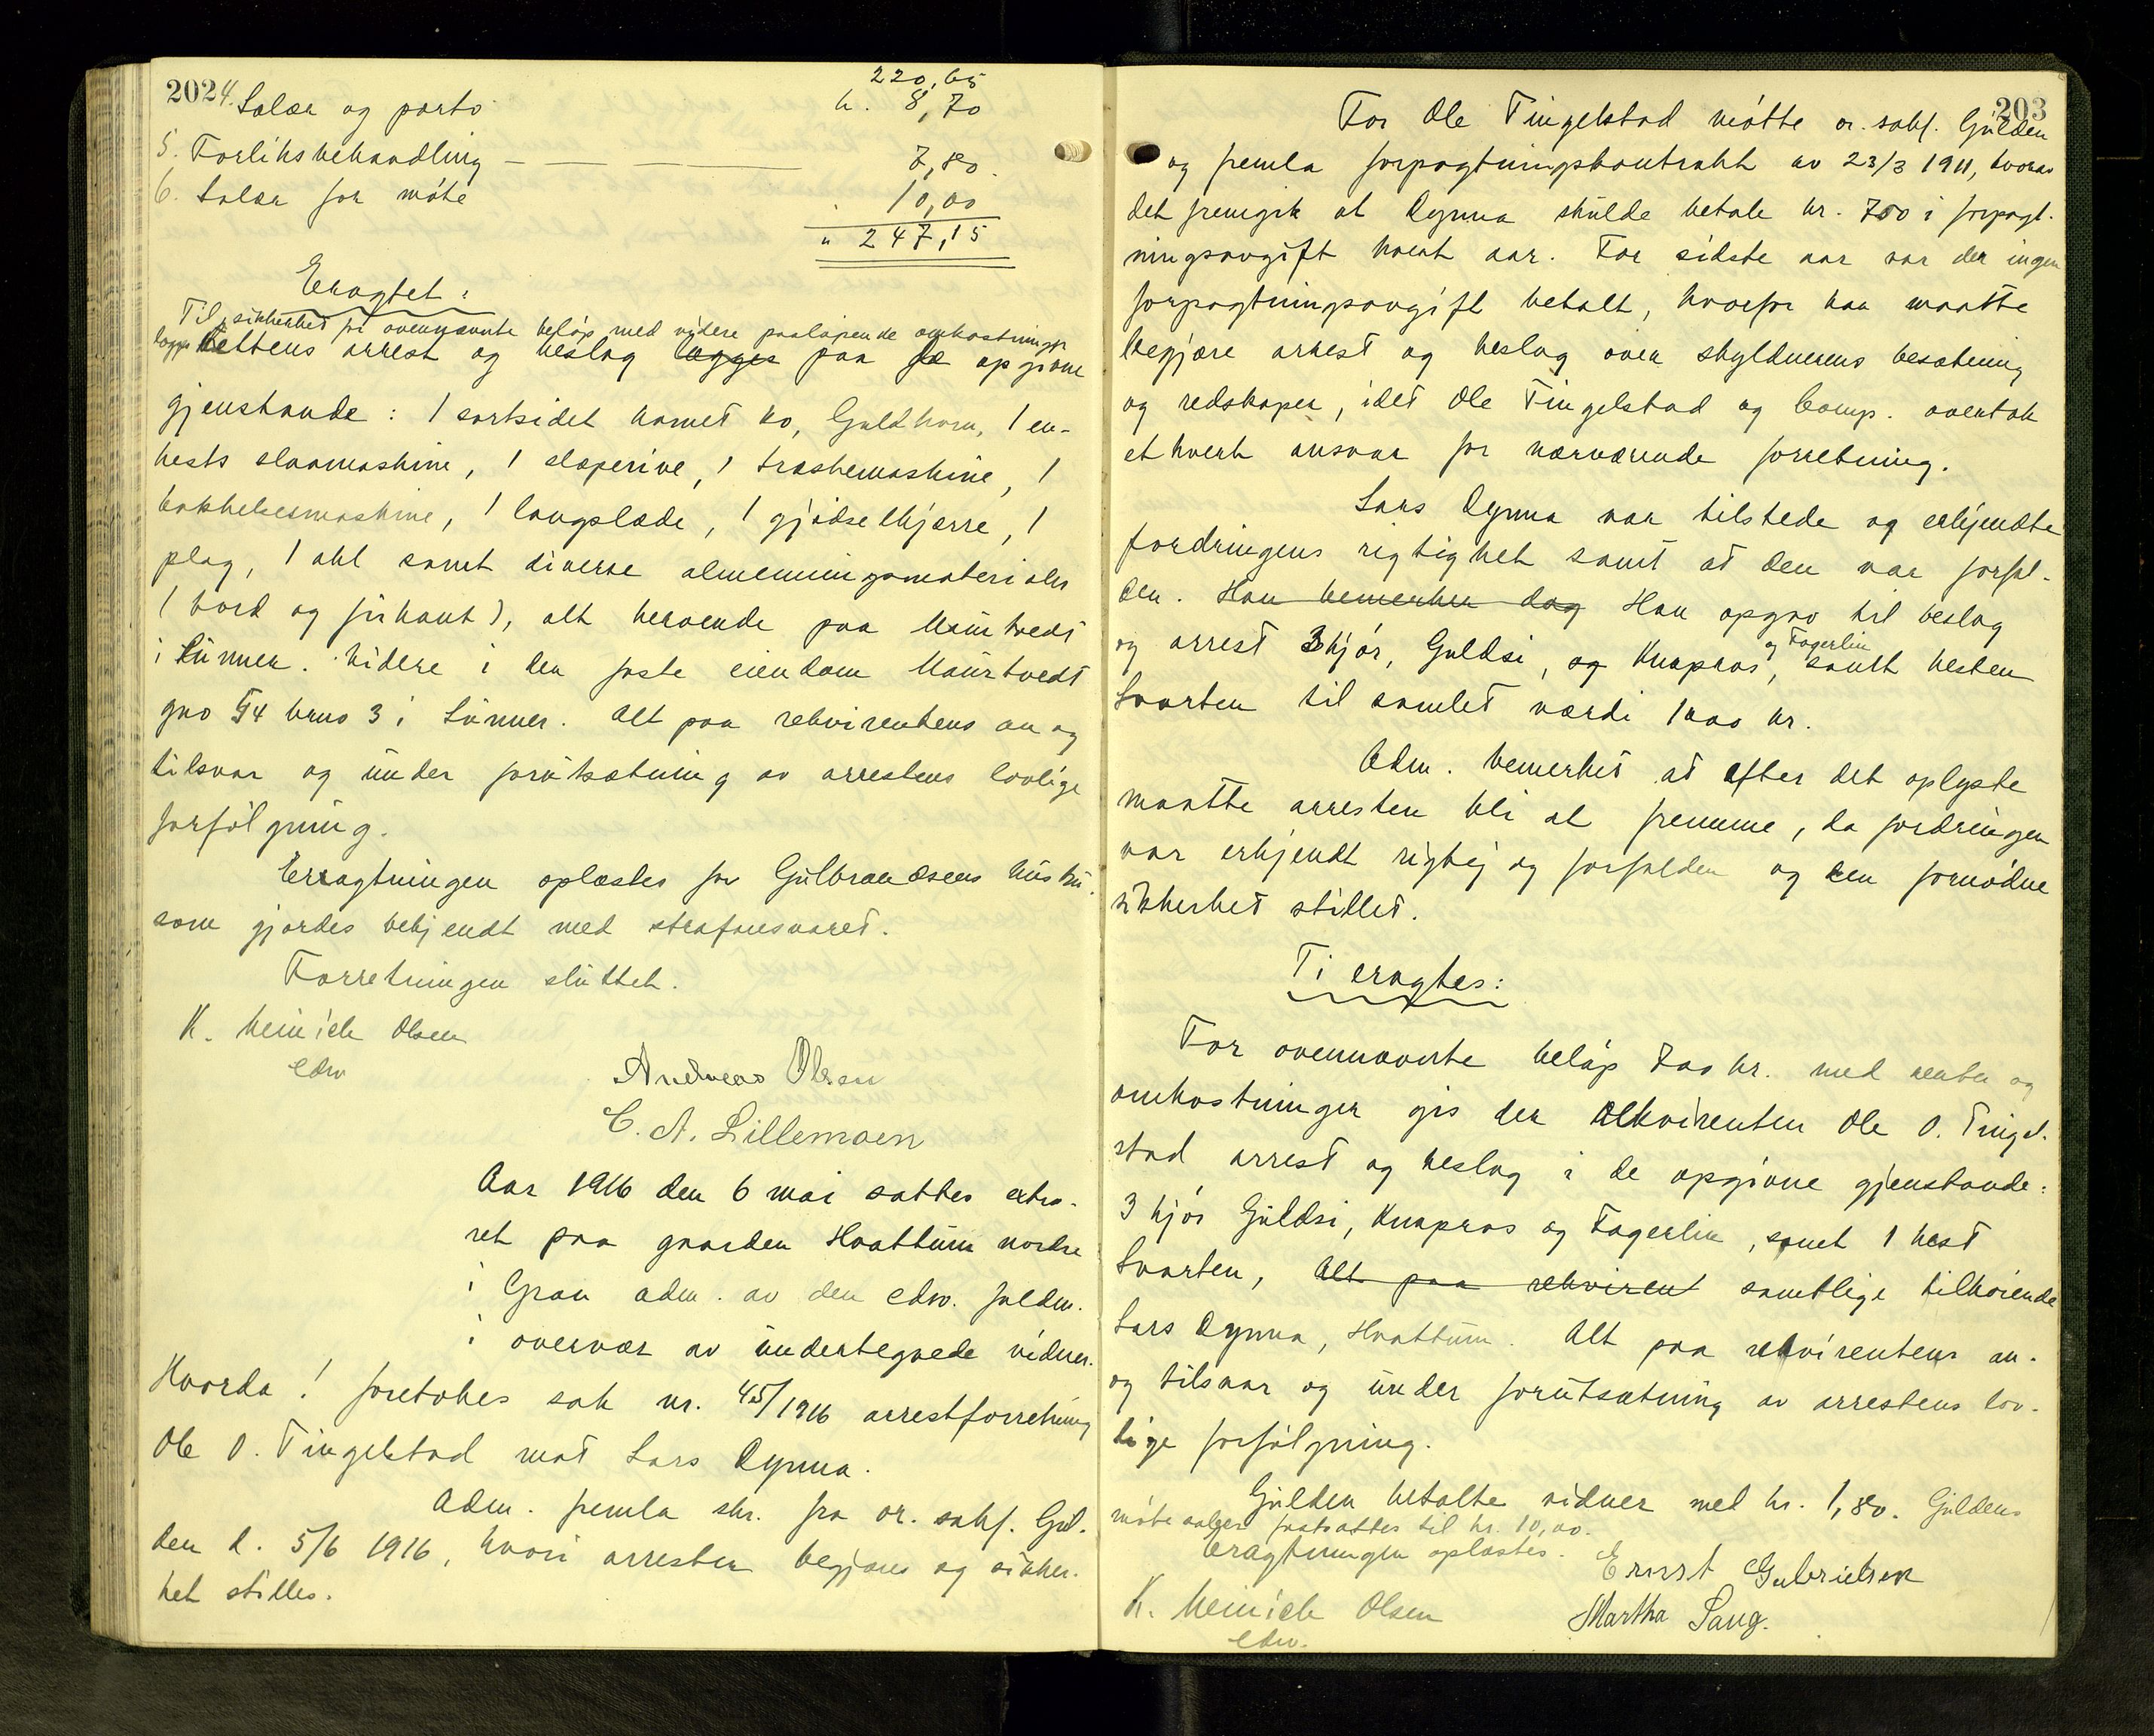 202
220,65
4. Salær og porto h. 8,70
5. Forliksbehandling — — — 7,80.
6. Salær for møte " 10,00
" 247,15
Eragtet:
Til sikkerhet for ovennævnte beløp med videre paaløpende omkostninger
lægges Rettens arrest og beslag lægges paa de opgivne
gjenstande: 1 sortsidet hornet ko, Guldhorn, 1 en-
hests slaamaskine, 1 slæperive, 1 træskemaskine, 1
hakkelsesmaskine, 1 langslæde, 1 gjødselkjærre, 1
plog, 1 ahl samt diverse almenningsmaterialer
(bord og firkant), alt beroende paa Maurtvedt
i Lunner. Videre i den faste eiendom Maurtvedt
gno 54 bruo 3 i Lunner. Alt paa rekvirentens an og
tilsvar og under forutsætning av arrestens lovlige
forfølgning.
Eragtningen oplæstes for Gulbrandsens hustru.
som gjordes bekjendt med strafansvaret.
Forretningen sluttet.
K. Meinich Olsen
edsv
Andreas Olsen
C. A. Lillemoen
Aar 1916 den 6 mai sattes extra-
ret paa gaarden Hvattum nordre
i Gran adm. av den edsv. fuldm.
i overvær av undertegnede vidner.
Hvorda! foretokes sak nr. 45/1916 arrestforretning
Ole O. Tingelstad mot Lars Dynna.
Adm. fremla skr. fra or. sakf. Gul-
den d. 5/6 1916, hvori arresten begjæres og sikker-
het stilles.
203
For Ole Tingelstad møtte or. sakf. Gulden
og fremla forpagtningskontrakt av 23/3 1911, hvorav
det fremgik at Dynna skulde betale kr. 700 i forpagt-
ningsavgift hvert aar. For sidste aar var der ingen
forpagtningsavgift betalt, hvorfor han maatte
begjære arrest og beslag over skyldnerens besætning
og redskaper, idet Ole Tingelstad og Comp. overtok
ethvert ansvar for nærværende forretning.
Lars Dynna var tilstede og erkjendte
fordringens rigtighet samt at den var forfal-
den. Han bemerker dog Han opgav til beslag
og arrest 3 kjør, Guldsi, og Knapros, og Fagerlin samt hesten
Svarten til samlet værdi 1000 kr.
Adm. bemerket at efter det oplyste
maatte arresten bli at fremme, da fordringen
var erkjendt rigtig og forfalden og den fornødne
sikkerhet stillet.
Ti eragtes:
For ovennævnte beløp 700 kr. med renter og
omkostninger gis der rekvirenten Ole O. Tingel-
stad arrest og beslag i de opgivne gjenstande:
3 kjør Guldsi, Knapros og Fagerlin, samt 1 hest
Svarten, Alt paa rekvirent samtlige tilhørende
Lars Dynna, Hvattum. Alt paa rekvirentens an-
og tilsvar og under forutsætning av arrestens lov-
lige forfølgning.
Gulden betalte vidner med kr. 1,80. Guldens
møtesalær fastsattes til kr. 10,00.
Eragtningen oplæstes.
Ernst Gulbrandsen
K. Meinich Olsen
edsv.
Martha Sang.